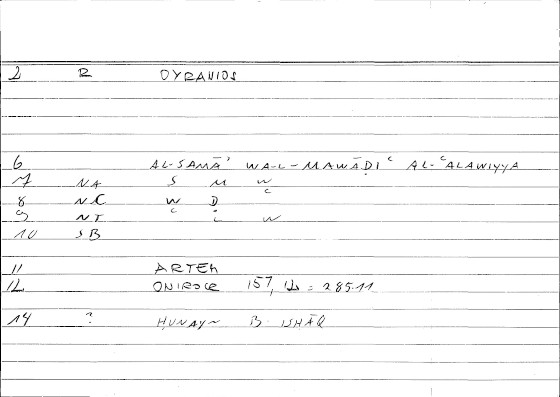 2 R OYRANIOS
6 AL-SAMĀʾ WA-L-MAWĀḌIʿ AL-ʿALAWIYYA
7 NA S M W
8 NC W Ḍ ʿ
9 NT ʿ L W
10 SB
11 ARTEM
12 ONIROCR 157, 12 = 285.11
14 ? ḤUNAYN B. ISḤĀQ